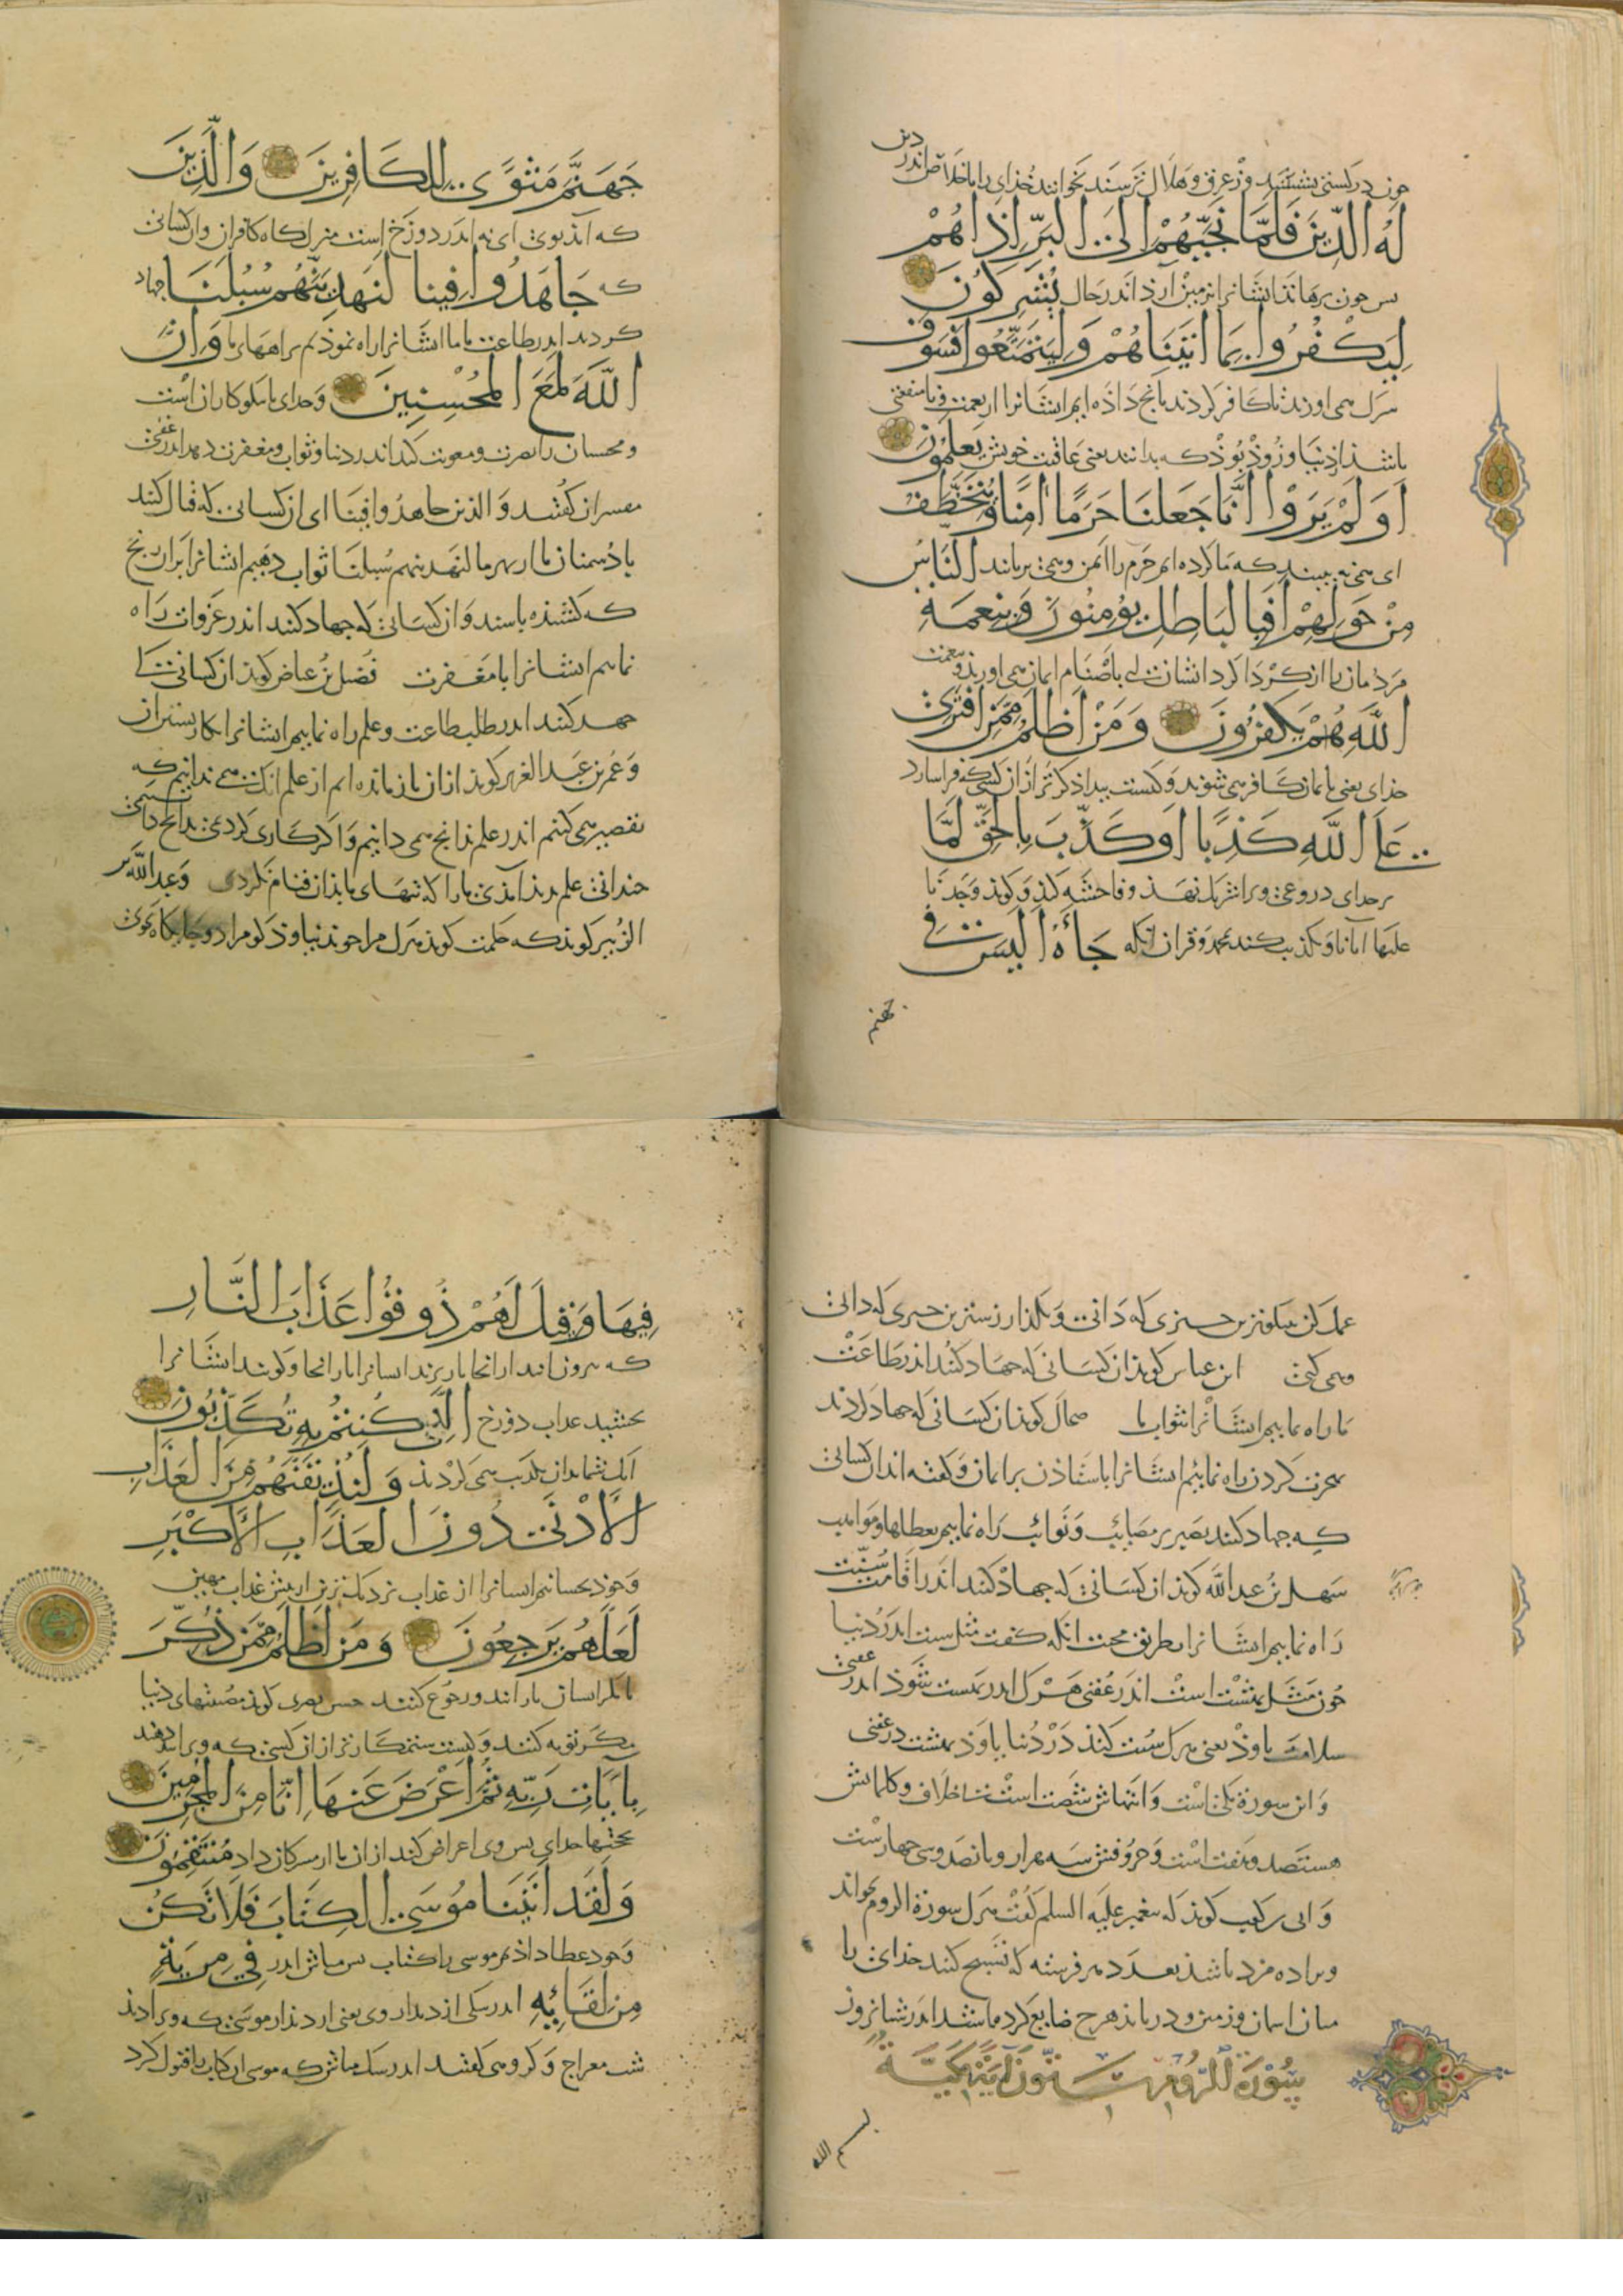 چون در کشتی نشستند و از غرق و هلاک ترسند بخوانند خدای را باخلاص اندر
دین
لَهُ الدِّينَ فَلَمَّا نَجَّيهُمْ إِلَى البَرِّ إِذَا هُمْ
بس چون برهاند ایشانرا بزمین آرد اندر حال يُشْرِكُونَ
لِيَكْفُرُوا بِمَا اتَيْنَاهُمْ وَلِيَتَمَتَّعُوا فَسَوْفَ
کافر کردند بانچ داده ایم ایشانرا از نعمت و تا منفعتی
باشد از دنیا و زوذ بوذ که بدانند یعنی عاقبت خویش يَعْلَمُونَ
أَوَلَمْ يَرَوْا أَنَّا جَعَلْنَا حَرَمًا امِنًا وَيُتَخَطَّفُ
ای می نه بینند که ما کرده ایم حرم را ایمن و می برمانند النَّاسُ
مِنْ حَوْلِهِمْ أَفَبِالبَاطِلِ يُؤْمِنُونَ وَبِنِعْمَةِ
مردمان را از کرد ایشان باصنام ایمان می اورند و بنعمت
اللَّهِ هُمْ يَكْفُرُونَ وَمَنْ أَظْلَمُ مِمَّنِ افْتَرَى
خدای یعنی کافر می شوند و کیست بیدادکرتر از آن کسی که
عَلَى اللَّهِ كَذِبًا أَوْ كَذَّبَ بِالحَقِّ لَمَّا
بر خدای دروغی و فاحشه کند و کوید وجدنا
علیها آباءنا و تکذیب کند محمد و قران آنکه جَاءَهُ أَلَيْسَ فِي
جهنم
جَهَنَّمَ مَثْوًى لِلكَافِرِينَ وَالَّذِينَ
که آید بوی ای نه اندر دوزخ است منزل کاه کافران وان کسانی
که جَاهَدُوا فِينَا لَنَهْدِيَنَّهُم سُبُلَنَا جهاد
کردند اندر طاعت ما ما ایشانرا راه نموذیم براههای ما وَإِنَّ
اللَّهَ لَمَعَ المُحْسِنِينَ وخدای با نیکوکاران است
و محسنان را نصرت و معونت کند اندر دنیا و ثواب و مغفرت دهد اندر عقبی
مفسران کفتند والذین جاهدوا فینا ای ان کسانی که قتال کنند
با دشمنان ما از بهر ما لنهدینهم سبلنا ثواب دهیم ایشانرا بران رنج
که کشنده باشند و ان کسانی که جهاد کنند اندر غزوات راه
نماییم ایشانرا با مغفرت فضل بن عیاض کوید ان کسانی که
جهد کنند اندر طلب طاعت و علم راه نماییم ایشانرا کار بستن ان
و عمر بن عبد العزیز کوید ازان بازمانده ایم از علم انک می ندانیم که
تقصیر می کنیم اندر علم بدانچ می دانیم و اکر کار کردی بدانچ دانستی
چندانی علم پدید آمدی ما را که تنهای ما بذان قیام نکردی و عبد الله بن
الزبیر کوید که حکمت کوید هرک مرا جوید نیابد کو مرا دو جایکاه جوی
عمل کن نیکوترین چیزی که دانی و بگذار زشترین چیزی که دانی
و می کنی ابن عباس کوید ان کسانی که جهاد کنند اندر طاعت
ما راه نماییم ایشانرا بثواب ما ضحاک کوید ان کسانی که جهاد کردند
بهجرت کردن راه نماییم ایشانرا باستادن بر ایمان و کفته اند ان کسانی
که جهاد کنند بصبر بر مصایب و نوائب راه نماییم بعطاها و مواهب
سهل بن عبد الله کوید ان کسانی که جهاد کنند اندر اقامت سنت
راه نماییم ایشانرا بطریق محبت آنکه کفت مثل سنت اندر دنیا
چون مثل بهشت است اندر عقبی هرک اندر بهشت شوذ اندر عقبی
سلامت یاوذ یعنی هرک سنت کند در دنیا یاوذ بهشت در عقبی
و این سورة مکی است و آیتهاش شصت است بی خلاف و کلماتش
هشتصد و هفت است و حروفش سه هزار و بانصد و سی چهارست
و ابی بن کعب کوید که پیغمبر علیه السلم کفت هرک سورة الروم بخواند
ویرا ده مزد باشد بعدد هر فرشته که تسبیح کند خدای را
میان اسمان و زمین و دریابذ هرچ ضایع کرده باشد اندر شبانروز
سُوْرَةُ الرُّومِ سِتُّونَ آيَةً مَكِّيَّةٌ
بسم الله
فِيهَا وَقِيلَ لَهُمْ ذُوقُوا عَذَابَ النَّارِ
که برون آیند از انجا باز برند ایشانرا باز انجا و کویند ایشانرا
بچشید عذاب دوزخ الَّذِي كُنتُمْ بِهِ تُكَذِّبُونَ
آنک شما بدان تکذیب می کردند وَلَنُذِيقَنَّهُمْ مِنَ العَذَابِ
الأَدْنَى دُونَ العَذَابِ الأَكْبَرِ
و خود بچشانیم ایشانرا از عذاب نزدیک ترین از پیش عذاب مهین
لَعَلَّهُمْ يَرْجِعُونَ وَمَنْ أَظْلَمُ مِمَّنْ ذُكِّرَ
تا مکر ایشان باز آیند و رجوع کنند حسن بصری کوید مصیبتهای دنیا
مکر توبه کنند و کیست ستمکارتر از ان کسی که ویرا بند دهند
بِآيَاتِ رَبِّهِ ثُمَّ أَعْرَضَ عَنْهَا إِنَّا مِنَ المُجْرِمِينَ
بحجتها خدای بس وی اعراض کند از ان ما از مُنتَقِمُونَ
وَلَقَدْ اتَيْنَا مُوسَى الكِتَابَ فَلَا تَكُنْ
و خود عطا داذیم موسی را کتاب بس مباش اندر فِي مِرْيَةٍ
مِنْ لِقَائِهِ اندر شکی از دیدار وی یعنی از دیدار موسی که ویرا دید
شب معراج و کروهی کفتند اندر شک مباش که موسی ان کتاب را قبول کرد